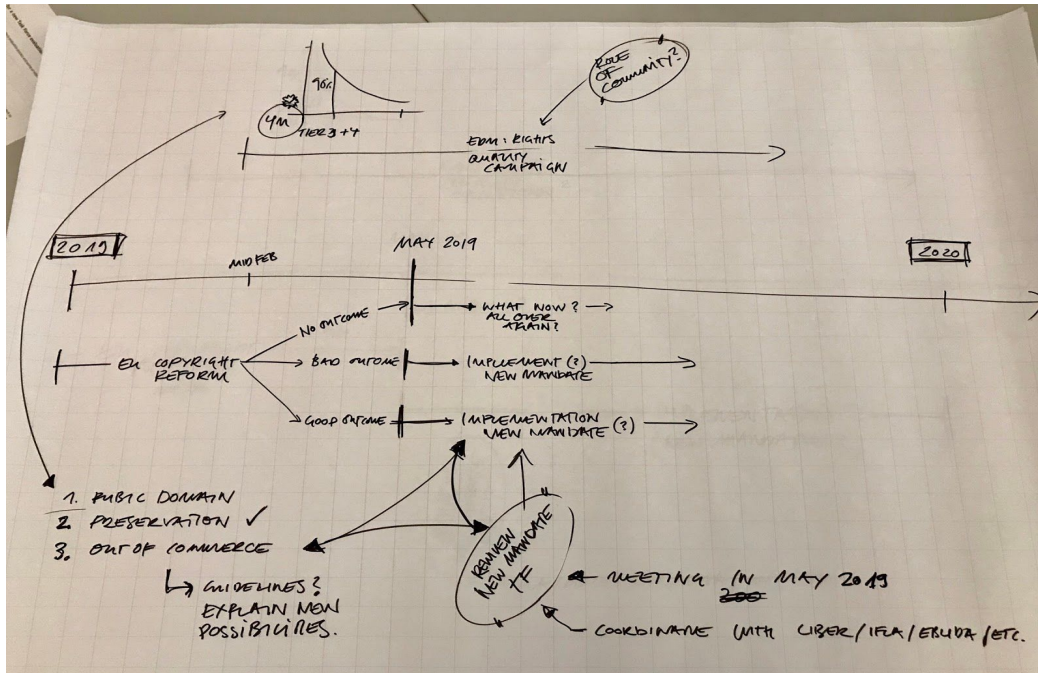 ROLE
OF
COMMUNITY?
90%
4M
TIER 3 + 4
EDM: RIGHTS
QUALITY
CAMPAIGN
2019
MAY 2019
2020
MID FEB
NO OUTCOME
WHAT NOW?
ALL OVER
AGAIN?
EU COPYRIGHT
REFORM
BAD OUTCOME
IMPLEMENT (?)
NEW MANDATE
GOOD OUTCOME
IMPLEMENTATION
NEW MANDATE (?)
1. PUBLIC DOMAIN
2. PRESERVATION ✓
3. OUT OF COMMERCE
GUIDELINES?
EXPLAIN NEW
POSSIBILITIES.
NEW MANDATE
TF
MEETING IN MAY 2019
COORDINATE WITH LIBER/IFLA/EBLIDA/ETC.